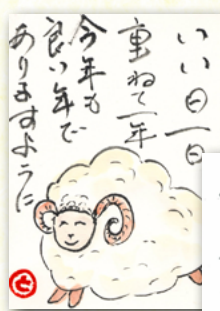 いい日一日
重ねて一年
今年も
良い年で
ありますように